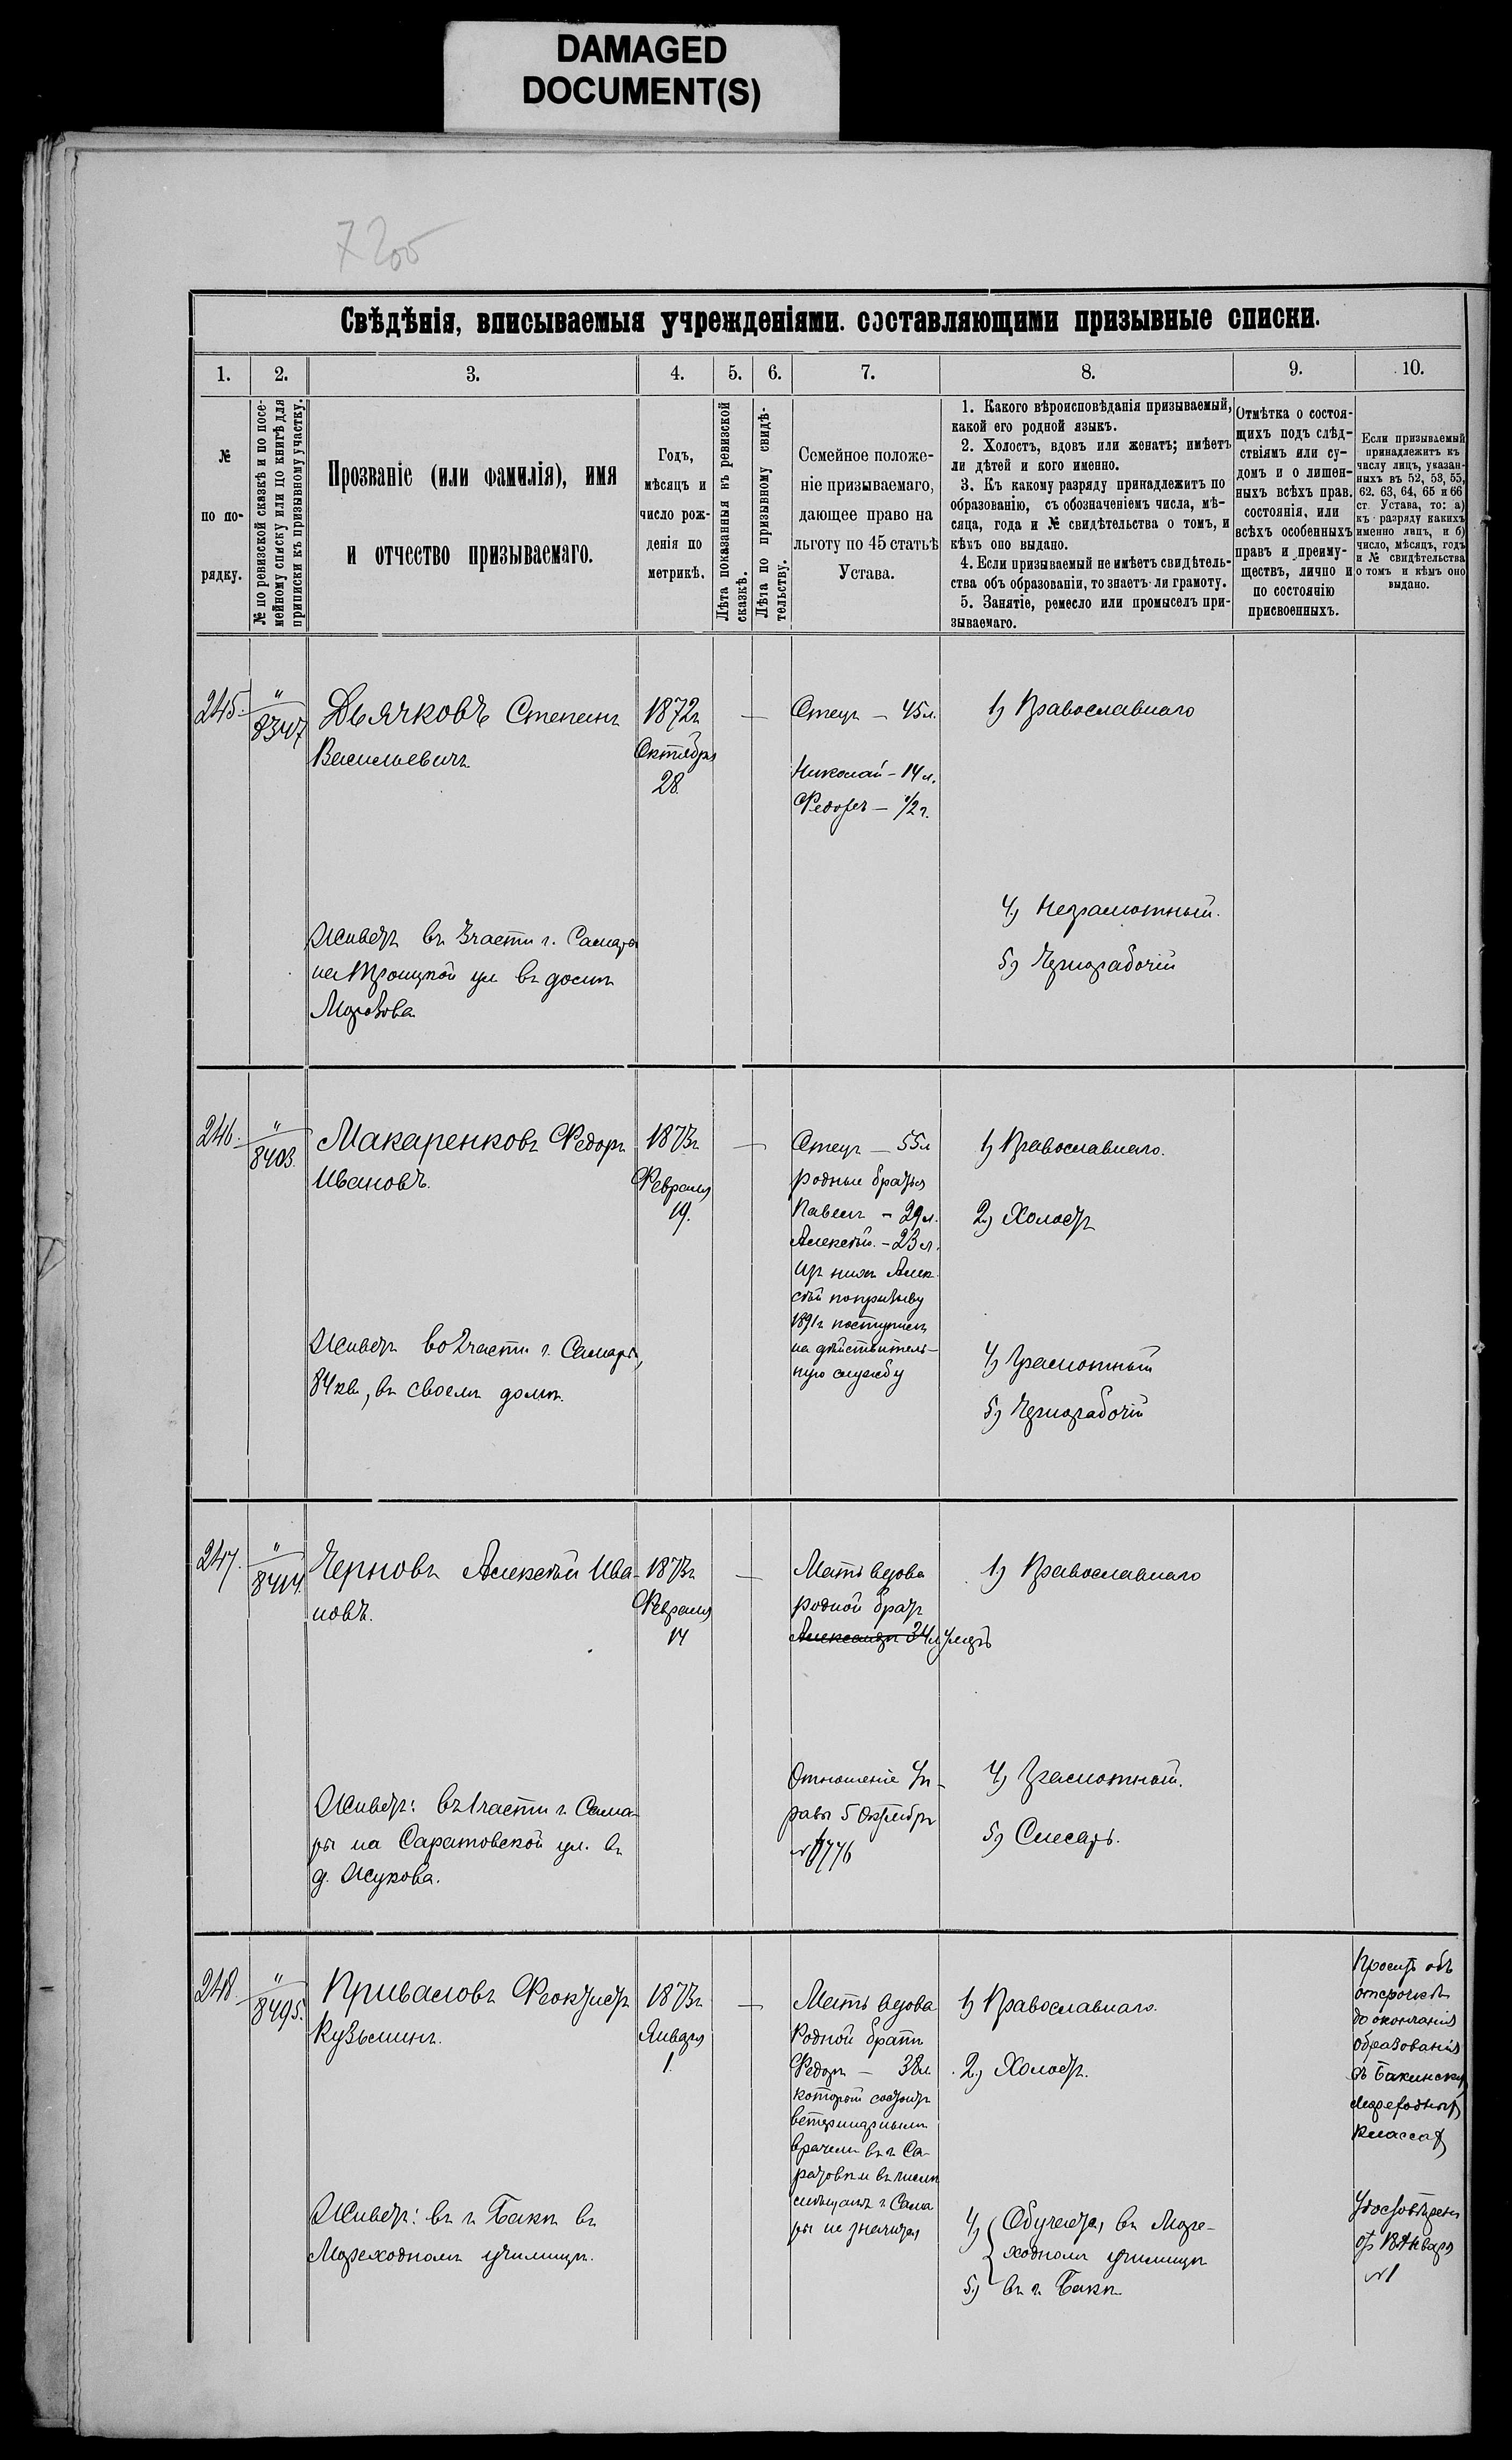 DAMAGED
DOCUMENT(S)
7205
Свѣдѣнія, вписываемыя учрежденіями. составляющими призывные списки.
1. 2. 3. 4. 5. 6. 7. 8. 9. 10.
№
по по-
рядку.
№ по ревизской сказкѣ и по посе-
мейному списку или по книгѣ для
приписки къ призывному участку.
Прозваніе (или фамилія), имя
и отчество призываемаго.
Годъ,
мѣсяцъ и
число рож-
денія по
метрикѣ.
Лѣта показанныя въ ревизской
сказкѣ.
Лѣта по призывному свидѣ-
тельству.
Семейное положе-
ніе призываемаго,
дающее право на
льготу по 45 статьѣ
Устава.
1. Какого вѣроисповѣданія призываемый,
какой его родной языкъ.
2. Холостъ, вдовъ или женатъ; имѣетъ
ли дѣтей и кого именно.
3. Къ какому разряду принадлежитъ по
образованію, съ обозначеніемъ числа, мѣ-
сяца, года и № свидѣтельства о томъ, и
кѣмъ оно выдано.
4. Если призываемый не имѣетъ свидѣтель-
ства объ образованіи, то знаетъ-ли грамоту.
5. Занятіе, ремесло или промыселъ при-
зываемаго.
Отмѣтка о состоя-
щихъ подъ слѣд-
ствіямъ или су-
домъ и о лишен-
ныхъ всѣхъ прав.
состоянія, или
всѣхъ особенныхъ
правъ и преиму-
ществъ, лично и
по состоянію
присвоенныхъ.
Если призываемый
принадлежитъ къ
числу лицъ, указан-
ныхъ въ 52, 53, 55,
62. 63, 64, 65 и 66
ст. Устава, то: а)
къ разряду какихъ
именно лицъ, и б)
число, мѣсяцъ, годъ
и № свидѣтельства
о томъ и кѣмъ оно
выдано.
245.
"
8347
Дьячковъ Степанъ
Васильевичъ
1872г
Октября
28
—
Отецъ – 45л.
Николай – 14 л.
Федоръ – 1/2 г.
1) Православнаго
4) Неграмотный.
5) Чернорабочій
Живетъ въ 3 части г. Самары
на Троицкой ул въ домѣ
Морозова
246.
"
8403.
Макаренковъ Федоръ
Ивановъ.
1873г
Февраля
19.
—
Отецъ – 55л
родные братья
Павелъ – 29л.
Алексѣй. – 23 л.
Изъ нихъ Алек
сѣй по призыву
1891г поступилъ
на дѣйствитель-
ную службу
1) Православнаго.
2) Холостъ
4) Грамотный
5) Чернорабочій
Живетъ во 2 части г. Самары,
84 кв, въ своемъ домѣ.
247.
"
8414.
Черновъ Алексѣй Ива-
новъ.
1873г
Февраля
14
—
Мать вдова
родной братъ
Александръ 24л умеръ
Отношеніе Уп-
равы 5 Октября
№
1) Православнаго
4) Грамотный.
5) Слесарь.
Живетъ: въ 1 части г. Сама-
ры на Саратовской ул. въ
д. Жукова.
248
"
8495.
Приваловъ Феоктистъ
Кузьминъ.
1873г
Января
1
—
Мать вдова
Родной братъ
Федоръ – 38л
который состоитъ
ветеринарнымъ
врачемъ въ г. Са-
ратовѣ и въ числѣ
мѣщанъ г. Сама
ры не значится
1) Православнаго.
2) Холостъ.
4) Обучается, въ Море-
ходномъ училищѣ
5) въ г. Баку
Живетъ: въ г. Баку въ
Мореходномъ училищѣ.
Проситъ объ
отсрочкѣ
до окончанія
образованія
въ Бакинскихъ
мореходныхъ
классахъ
Января
№1